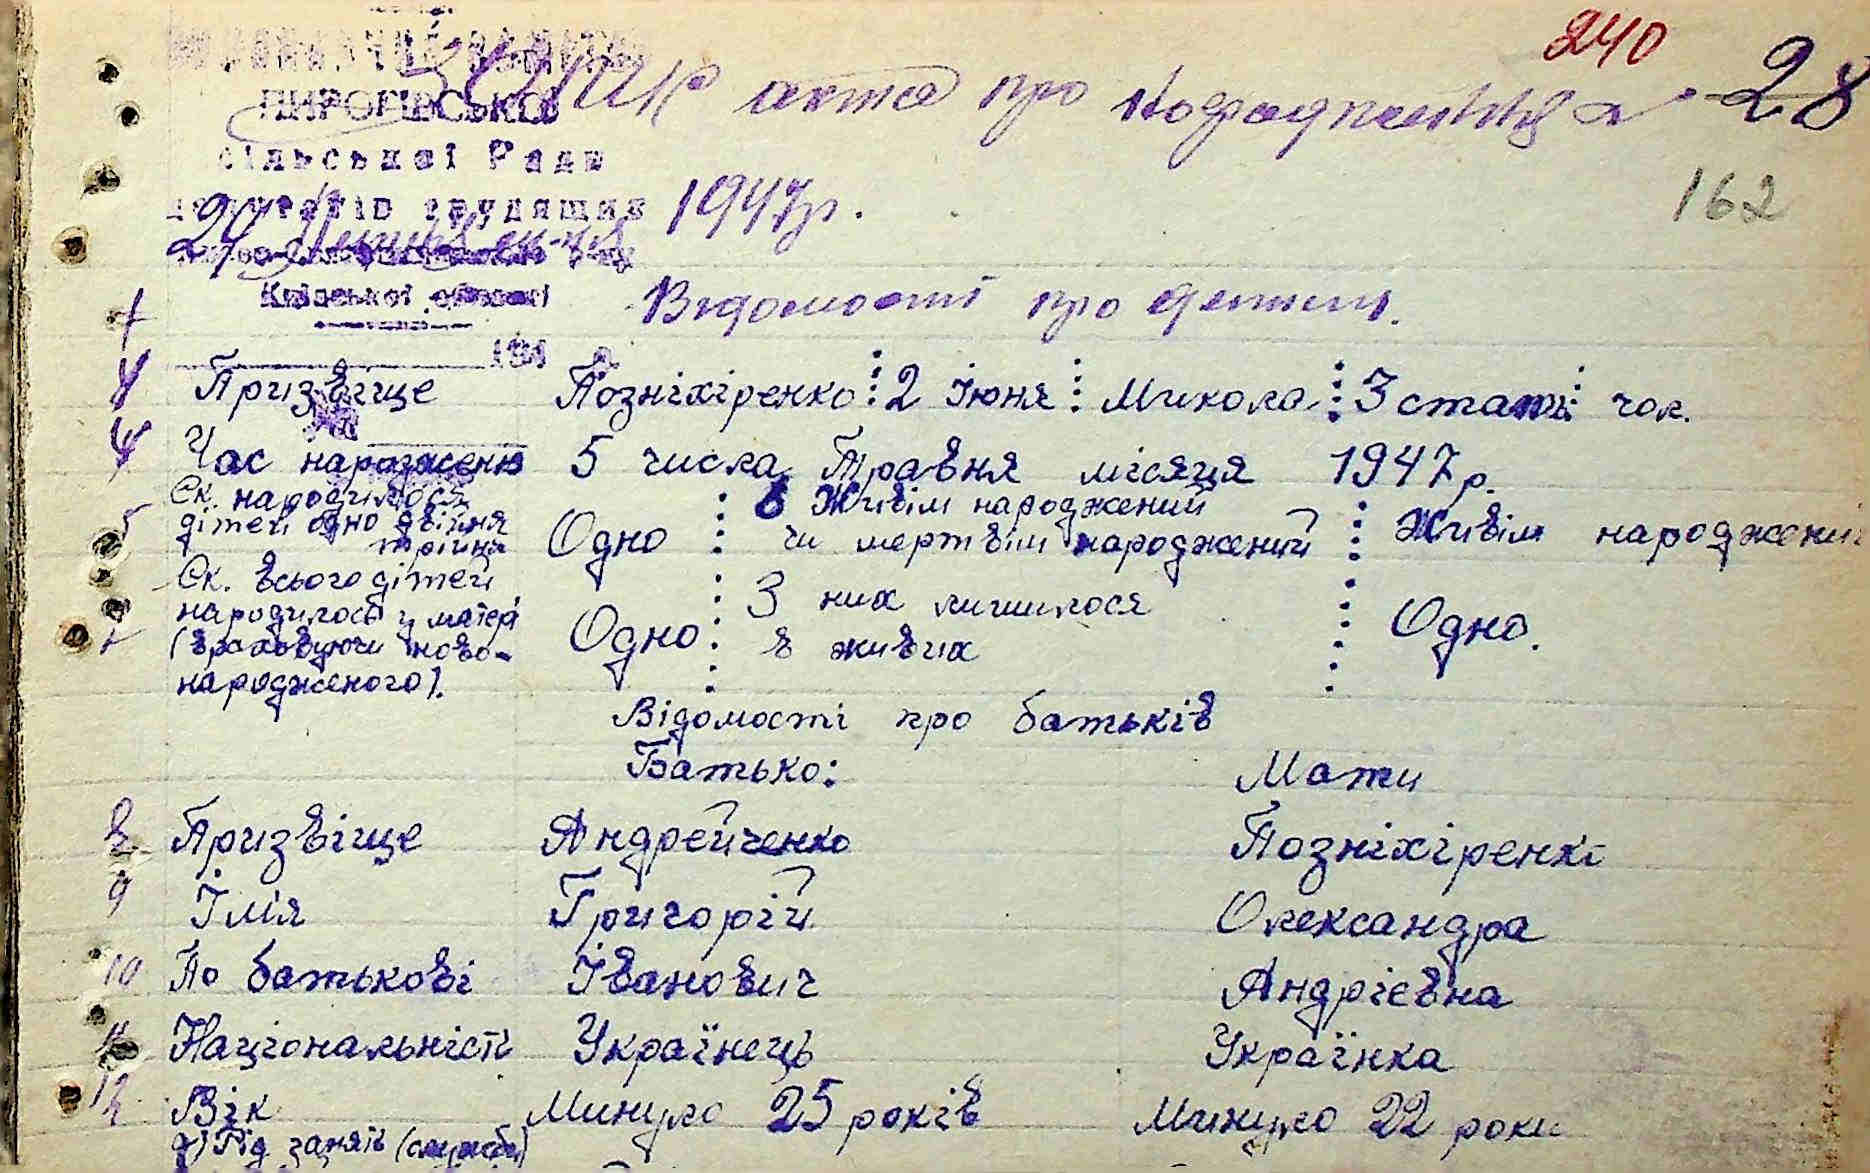 240
ЗАПИС акта про народження № 28
ПИРОГІВСЬКОЇ
сільської Ради
депутатів трудящих
162
29 1947р.
Київської області
Відомості про дитину.
194
4 Призвіще Позніхіренко 2 Іюня Микола 3 статі чол.
Час народженя 5 числа Травня місяця 1947р.
5 Ск. народилося дітей одно двійня трійня Одно 6 Живім народжений чи мертвім народжений Живім народжений
7 Ск. всього дітей народилось у матері (враховуючи ново-народженого). Одно З них лишилося в живих Одно.
Відомості про батьків
Батько: Мати
8 Призвіще Андрейченко Позніхіренко
9 Імія Григорій Олександра
10 По батькові Іванович Андрієвна
11 Національність Українець Українка
12 Вік Минуло 25 років Минуло 22 роки
а) Рід занять (служби)